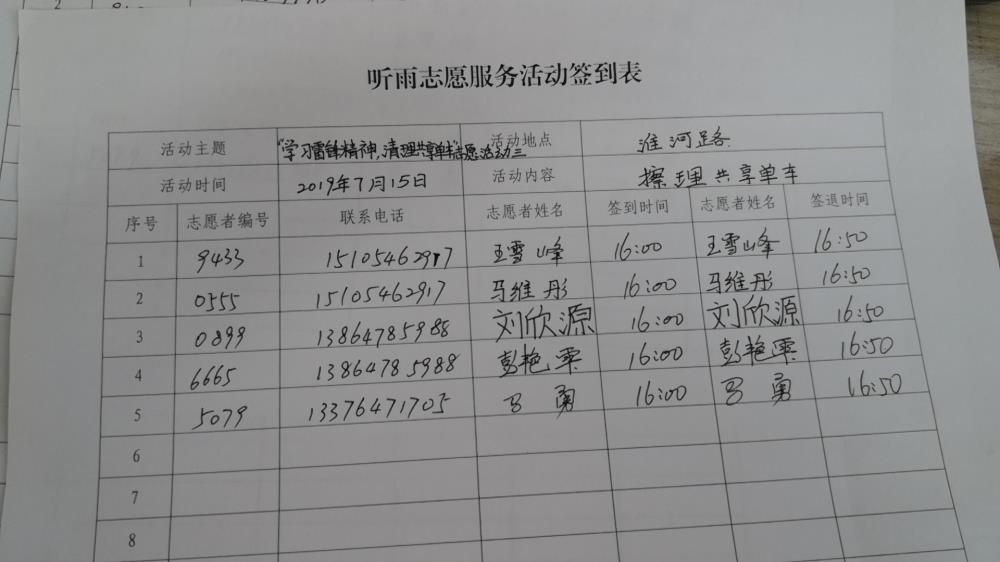 听雨志愿服务活动签到表
活动主题 "学习雷锋精神,清理共享单车"志愿活动三 活动地点 淮河路
活动时间 2019年7月15日 活动内容 擦理共享单车
序号 志愿者编号 联系电话 志愿者姓名 签到时间 志愿者姓名 签退时间
1 9433 15105462917 王雪峰 16:00 王雪峰 16:50
2 0355 15105462917 马维彤 16:00 马维彤 16:50
3 0899 13864785988 刘欣源 16:00 刘欣源 16:50
4 6665 13864785988 彭艳 16:00 彭艳 16:50
5 5079 13376471705 马勇 16:00 马勇 16:50
6
7
8